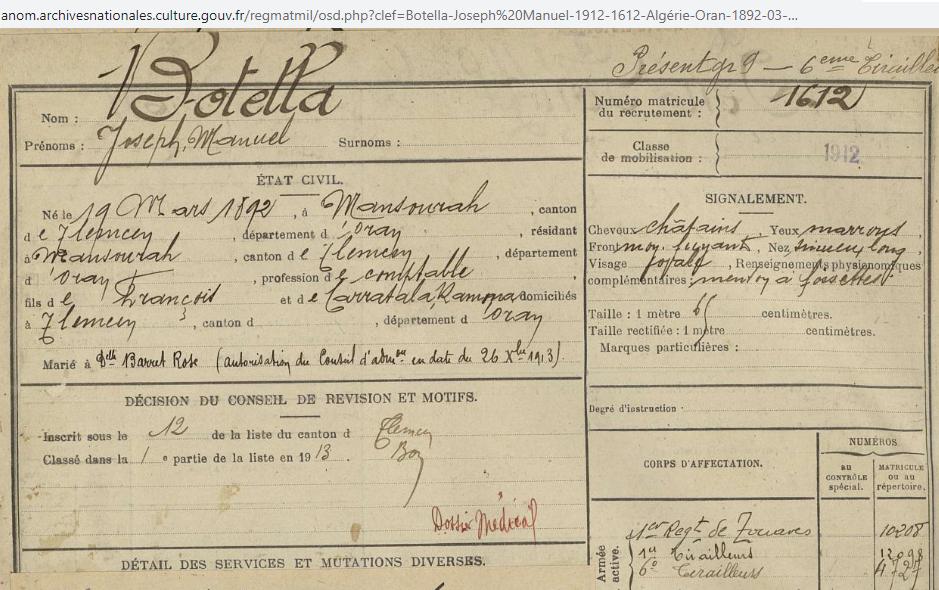 anom.archivesnationales.culture.gouv.fr/regmatmil/osd.php?clef=Botella-Joseph%20Manuel-1912-1612-Algérie-Oran-1892-03-...
Présent gr 9 — 6eme Tirailleu
Nom : Botella
Prénoms : Joseph, Manuel Surnoms :
Numéro matricule du recrutement : 1612
Classe de mobilisation : 1912
ÉTAT CIVIL.
Né le 19 Mars 1892, à Mansourah, canton
de Tlemcen, département d'Oran, résidant
à Mansourah, canton de Tlemcen, département
d'Oran, profession de comptable
fils de François et de Carratala, Ramona domiciliés
à Tlemcen, canton d , département d'Oran
Marié à Dlle Barret Rose (autorisation du Conseil d'admon en date du 26 Xbre 1913).
SIGNALEMENT.
Cheveux châtains, Yeux marrons,
Front moy. fuyant, Nez sinueux long
Visage , Renseignements physionomiques
complémentaires : menton à fossettes
Taille : 1 mètre centimètres.
Taille rectifiée : 1 mètre centimètres.
Marques particulières :
Degré d'instruction :
DÉCISION DU CONSEIL DE REVISION ET MOTIFS.
Inscrit sous le n° 12 de la liste du canton de Tlemcen
Classé dans la 1e partie de la liste en 1913. Bon
Dossier Médical
DÉTAIL DES SERVICES ET MUTATIONS DIVERSES.
CORPS D'AFFECTATION.
NUMÉROS
AU CONTRÔLE spécial.
MATRICULE OU AU répertoire.
Armée active.
1er Regt de Zouaves 10208
1er Tirailleurs 12098
6e Tirailleurs 4727